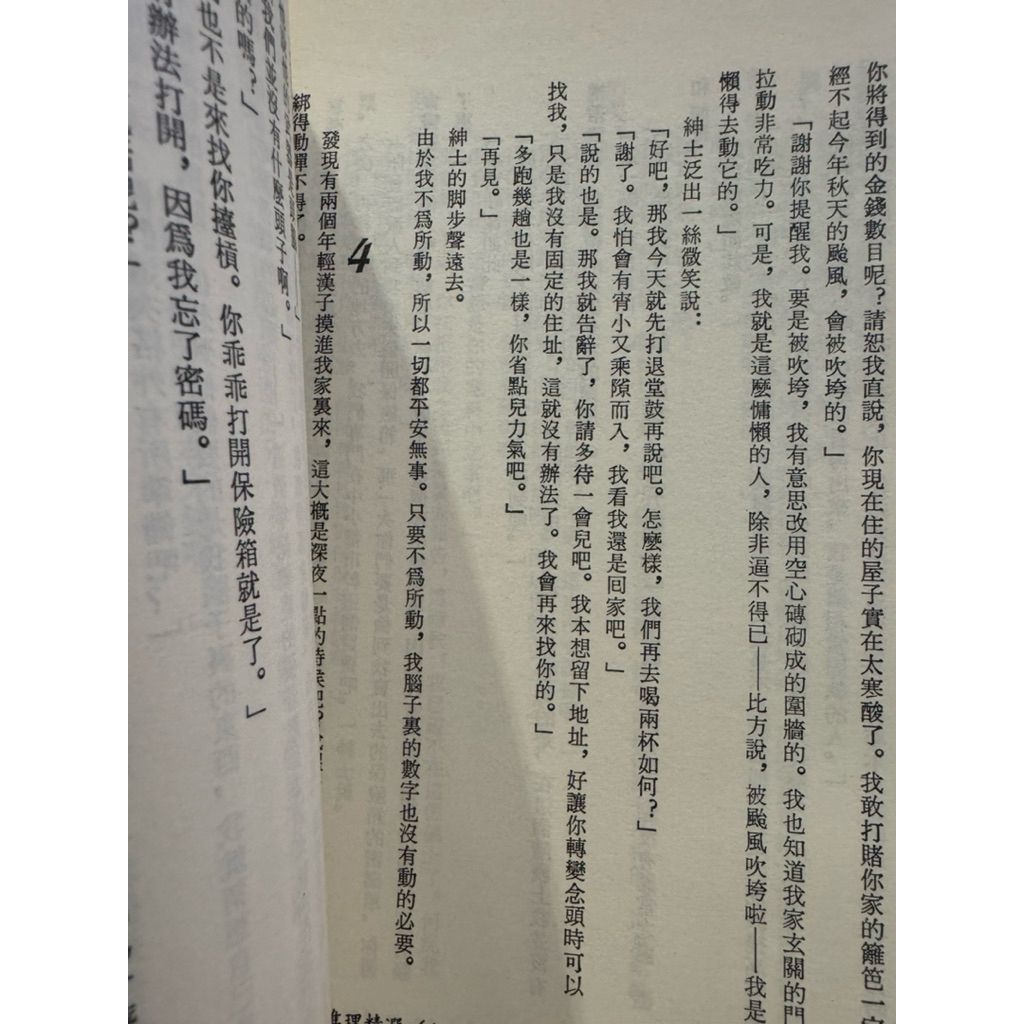 你將得到的金錢數目呢？請恕我直說，你現在住的屋子實在太寒酸了。我敢打賭你家的籬笆一定
經不起今年秋天的颱風，會被吹垮的。」
「謝謝你提醒我。要是被吹垮，我有意思改用空心磚砌成的圍牆的。我也知道我家玄關的門
拉動非常吃力。可是，我就是這麼慵懶的人，除非逼不得已——比方說，被颱風吹垮啦——我是
懶得去動它的。」
紳士泛出一絲微笑說：
「好吧，那我今天就先打退堂鼓再說吧。怎麼樣，我們再去喝兩杯如何？」
「謝了。我怕會有宵小又乘隙而入，我看我還是回家吧。」
「說的也是。那我就告辭了，你請多待一會兒吧。我本想留下地址，好讓你轉變念頭時可以
找我，只是我沒有固定的住址，這就沒有辦法了。我會再來找你的。」
「多跑幾趟也是一樣，你省點兒力氣吧。」
「再見。」
紳士的脚步聲遠去。
由於我不爲所動，所以一切都平安無事。只要不爲所動，我腦子裏的數字也沒有動的必要。
4
發現有兩個年輕漢子摸進我家裏來，這大概是深夜一點的時候吧？
綁得動彈不得了。
我們並沒有什麼頭子啊。」
的嗎？」
也不是來找你擡槓。你乖乖打開保險箱就是了。」
辦法打開，因爲我忘了密碼。」
推理精選